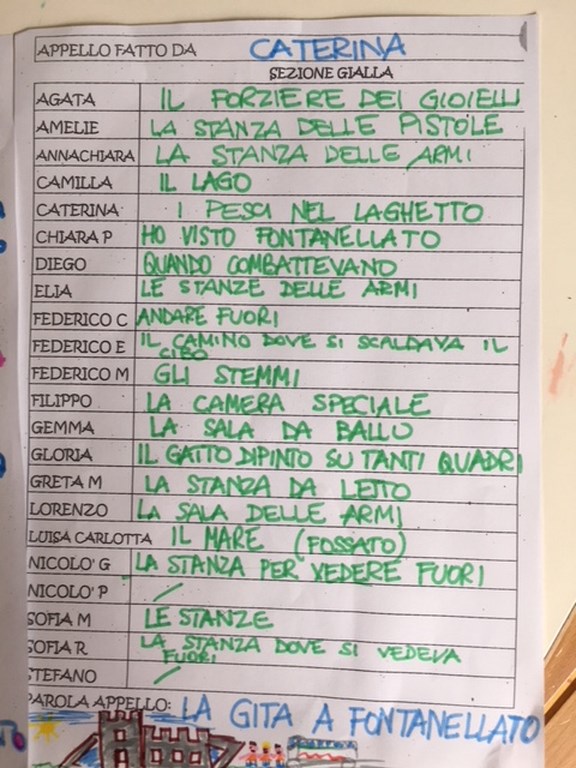 APPELLO FATTO DA CATERINA
SEZIONE GIALLA
AGATA IL FORZIERE DEI GIOIELLI
AMELIE LA STANZA DELLE PISTOLE
ANNACHIARA LA STANZA DELLE ARMI
CAMILLA IL LAGO
CATERINA I PESCI NEL LAGHETTO
CHIARA P HO VISTO FONTANELLATO
DIEGO QUANDO COMBATTEVANO
ELIA LE STANZE DELLE ARMI
FEDERICO C ANDARE FUORI
FEDERICO E IL CAMINO DOVE SI SCALDAVA IL
CIBO
FEDERICO M GLI STEMMI
FILIPPO LA CAMERA SPECIALE
GEMMA LA SALA DA BALLO
GLORIA IL GATTO DIPINTO SU TANTI QUADRI
GRETA M LA STANZA DA LETTO
LORENZO LA SALA DELLE ARMI
LUISA CARLOTTA IL MARE (FOSSATO)
NICOLO' G LA STANZA PER VEDERE FUORI
NICOLO' P /
SOFIA M LE STANZE
SOFIA R LA STANZA DOVE SI VEDEVA
FUORI
STEFANO /
PAROLA APPELLO: LA GITA A FONTANELLATO